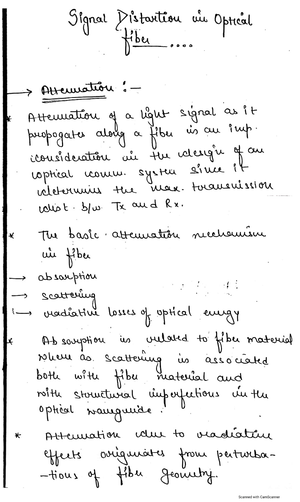 Signal Distortion in Optical
fiber ....
→ Attenuation :-
* Attenuation of a light signal as it
propogates along a fiber is an imp.
consideration in the design of an
optical comm. system since it
determines the max. transmission
dist. b/w Tx and Rx.
* The basic attenuation mechanism
in fiber
→ absorption
→ scattering
→ radiative losses of optical energy
* Absorption is related to fiber material
where as scattering is associated
both with fiber material and
with structural imperfections in the
optical waveguide.
* Attenuation due to radiative
effects originates from perturba-
-tions of fiber geometry.
Scanned with CamScanner